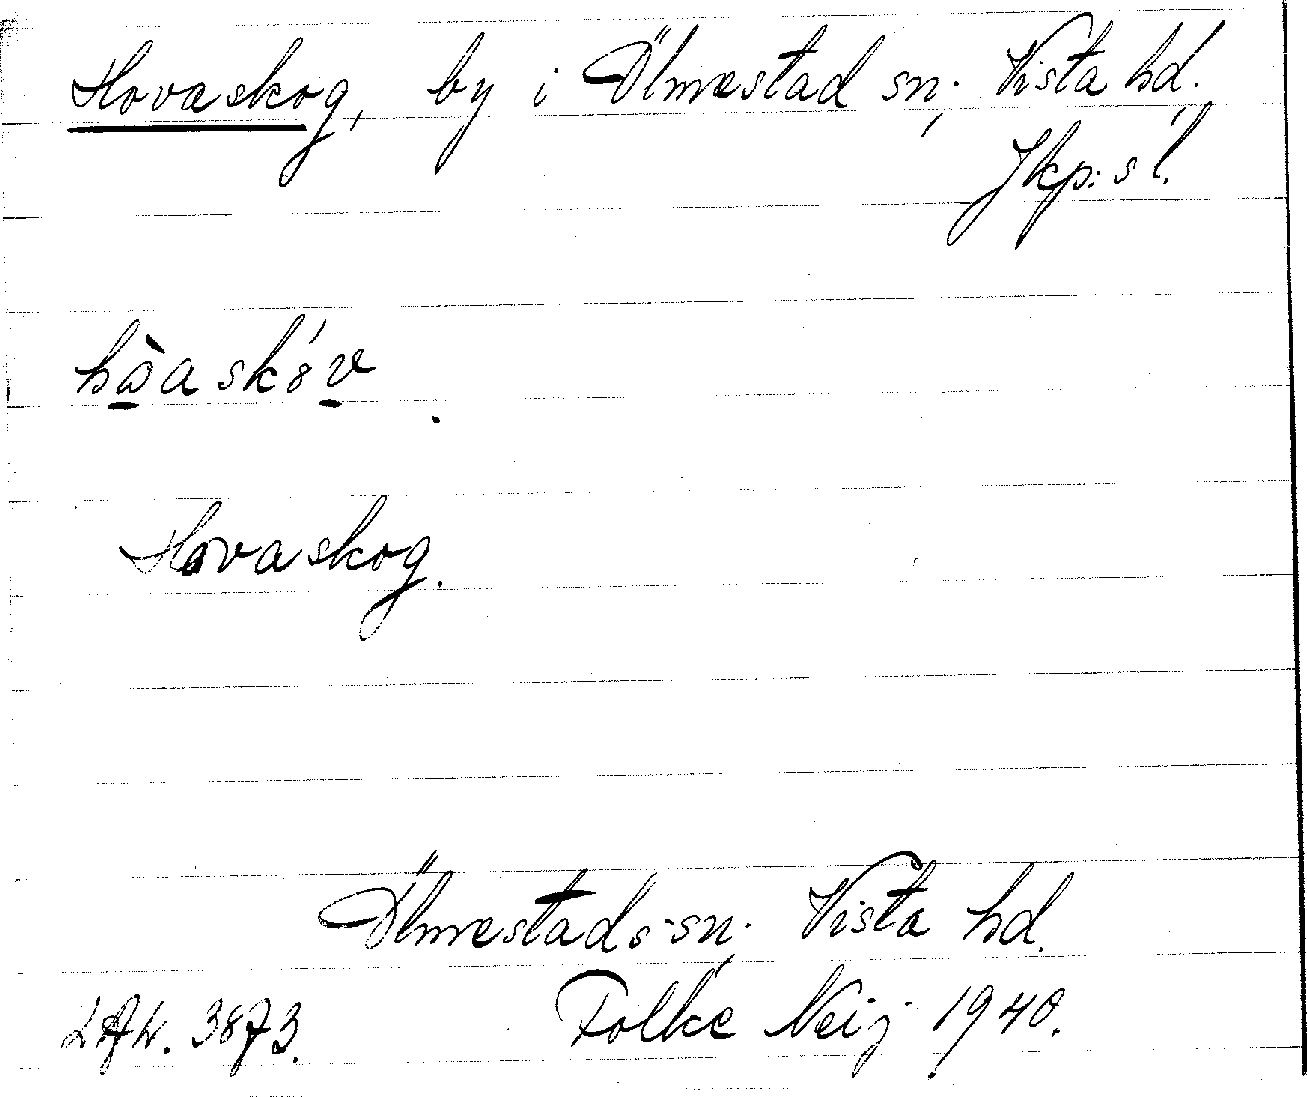 Hovaskog, by i Ölmestad sn, Vista hd.
Jkp:s l.
Hovaskog.
Ölmestads sn, Vista hd.
3873. Folke Neij 1940.